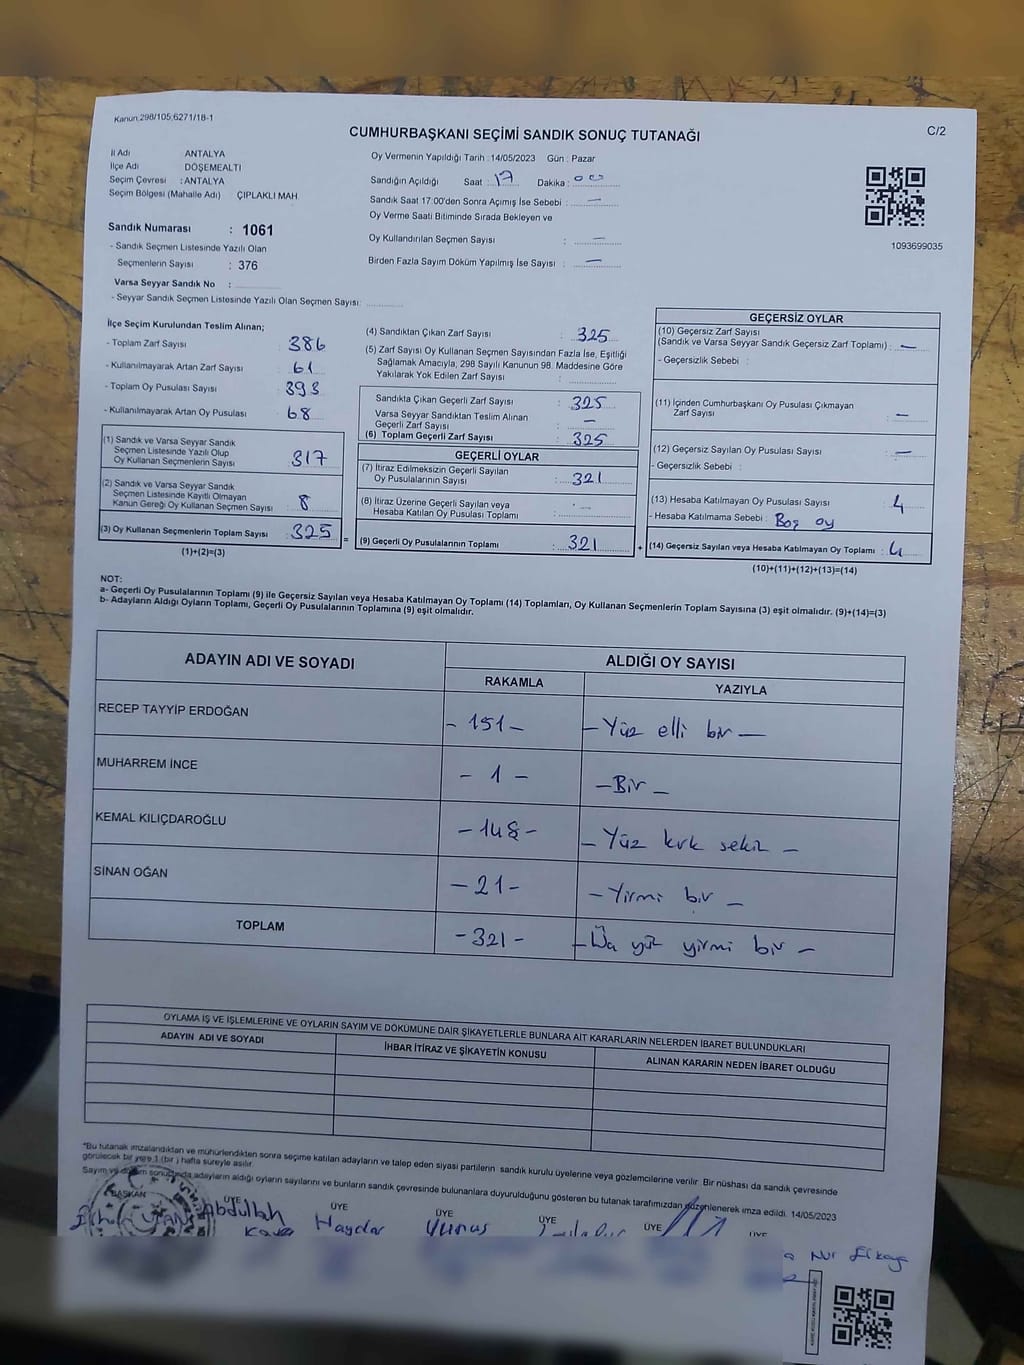 Kanun.298/105,6271/18-1
C/2
CUMHURBAŞKANI SEÇİMİ SANDIK SONUÇ TUTANAĞI
İl Adı ANTALYA
İlçe Adı DÖŞEMEALTI
Seçim Çevresi : ANTALYA
Seçim Bölgesi (Mahalle Adı) ÇIPLAKLI MAH
Sandık Numarası : 1061
- Sandık Seçmen Listesinde Yazılı Olan
Seçmenlerin Sayısı : 376
Varsa Seyyar Sandık No :
- Seyyar Sandık Seçmen Listesinde Yazılı Olan Seçmen Sayısı:
Oy Vermenin Yapıldığı Tarih : 14/05/2023 Gün : Pazar
Sandığın Açıldığı Saat : 17 Dakika : 00
Sandık Saat 17:00'den Sonra Açımış İse Sebebi : —
Oy Verme Saati Bitiminde Sırada Bekleyen ve
Oy Kullandırılan Seçmen Sayısı : —
Birden Fazla Sayım Döküm Yapılmış İse Sayısı : —
1093699035
İlçe Seçim Kurulundan Teslim Alınan;
- Toplam Zarf Sayısı : 386
- Kullanılmayarak Artan Zarf Sayısı : 61
- Toplam Oy Pusulası Sayısı : 393
- Kullanılmayarak Artan Oy Pusulası : 68
(1) Sandık ve Varsa Seyyar Sandık
Seçmen Listesinde Yazılı Olup
Oy Kullanan Seçmenlerin Sayısı : 317
(2) Sandık ve Varsa Seyyar Sandık
Seçmen Listesinde Kayıtlı Olmayan
Kanun Gereği Oy Kullanan Seçmen Sayısı : 8
(3) Oy Kullanan Seçmenlerin Toplam Sayısı : 325
(1)+(2)=(3)
(4) Sandıktan Çıkan Zarf Sayısı : 325
(5) Zarf Sayısı Oy Kullanan Seçmen Sayısından Fazla İse, Eşitliği
Sağlamak Amacıyla, 298 Sayılı Kanunun 98. Maddesine Göre
Yakılarak Yok Edilen Zarf Sayısı :
Sandıkta Çıkan Geçerli Zarf Sayısı : 325
Varsa Seyyar Sandıktan Teslim Alınan
Geçerli Zarf Sayısı : —
(6) Toplam Geçerli Zarf Sayısı : 325
GEÇERLİ OYLAR
(7) İtiraz Edilmeksizin Geçerli Sayılan
Oy Pusulalarının Sayısı : 321
(8) İtiraz Üzerine Geçerli Sayılan veya
Hesaba Katılan Oy Pusulası Toplamı : —
= (9) Geçerli Oy Pusulalarının Toplamı : 321
GEÇERSİZ OYLAR
(10) Geçersiz Zarf Sayısı
(Sandık ve Varsa Seyyar Sandık Geçersiz Zarf Toplamı) : —
- Geçersizlik Sebebi :
(11) İçinden Cumhurbaşkanı Oy Pusulası Çıkmayan
Zarf Sayısı : —
(12) Geçersiz Sayılan Oy Pusulası Sayısı : —
- Geçersizlik Sebebi :
(13) Hesaba Katılmayan Oy Pusulası Sayısı : 4
- Hesaba Katılmama Sebebi : Boş oy
+ (14) Geçersiz Sayılan veya Hesaba Katılmayan Oy Toplamı : 4
(10)+(11)+(12)+(13)=(14)
NOT:
a- Geçerli Oy Pusulalarının Toplamı (9) ile Geçersiz Sayılan veya Hesaba Katılmayan Oy Toplamı (14) Toplamları, Oy Kullanan Seçmenlerin Toplam Sayısına (3) eşit olmalıdır. (9)+(14)=(3)
b- Adayların Aldığı Oyların Toplamı, Geçerli Oy Pusulalarının Toplamına (9) eşit olmalıdır.
ADAYIN ADI VE SOYADI ALDIĞI OY SAYISI
RAKAMLA YAZIYLA
RECEP TAYYİP ERDOĞAN - 151 - - Yüz elli bir -
MUHARREM İNCE - 1 - - Bir -
KEMAL KILIÇDAROĞLU - 148 - - Yüz kırk sekiz -
SİNAN OĞAN - 21 - - Yirmi bir -
TOPLAM - 321 - - Üç yüz yirmi bir -
OYLAMA İŞ VE İŞLEMLERİNE VE OYLARIN SAYIM VE DÖKÜMÜNE DAİR ŞİKAYETLERLE BUNLARA AİT KARARLARIN NELERDEN İBARET BULUNDUKLARI
ADAYIN ADI VE SOYADI İHBAR İTİRAZ VE ŞİKAYETİN KONUSU ALINAN KARARIN NEDEN İBARET OLDUĞU
*Bu tutanak imzalandıktan ve mühürlendikten sonra seçime katılan adayların ve talep eden siyasi partilerin sandık kurulu üyelerine veya gözlemcilerine verilir. Bir nüshası da sandık çevresinde
görülecek bir yere 1 (bir) hafta süreyle asılır.
Sayım ve döküm sonucunda adayların aldığı oyların sayılarını ve bunların sandık çevresinde bulunanlara duyurulduğunu gösteren bu tutanak tarafımızdan düzenlenerek imza edildi. 14/05/2023
BAŞKAN ÜYE ÜYE ÜYE ÜYE ÜYE ÜYE
Abdullah Haydar Yunus
Kaya
Nur